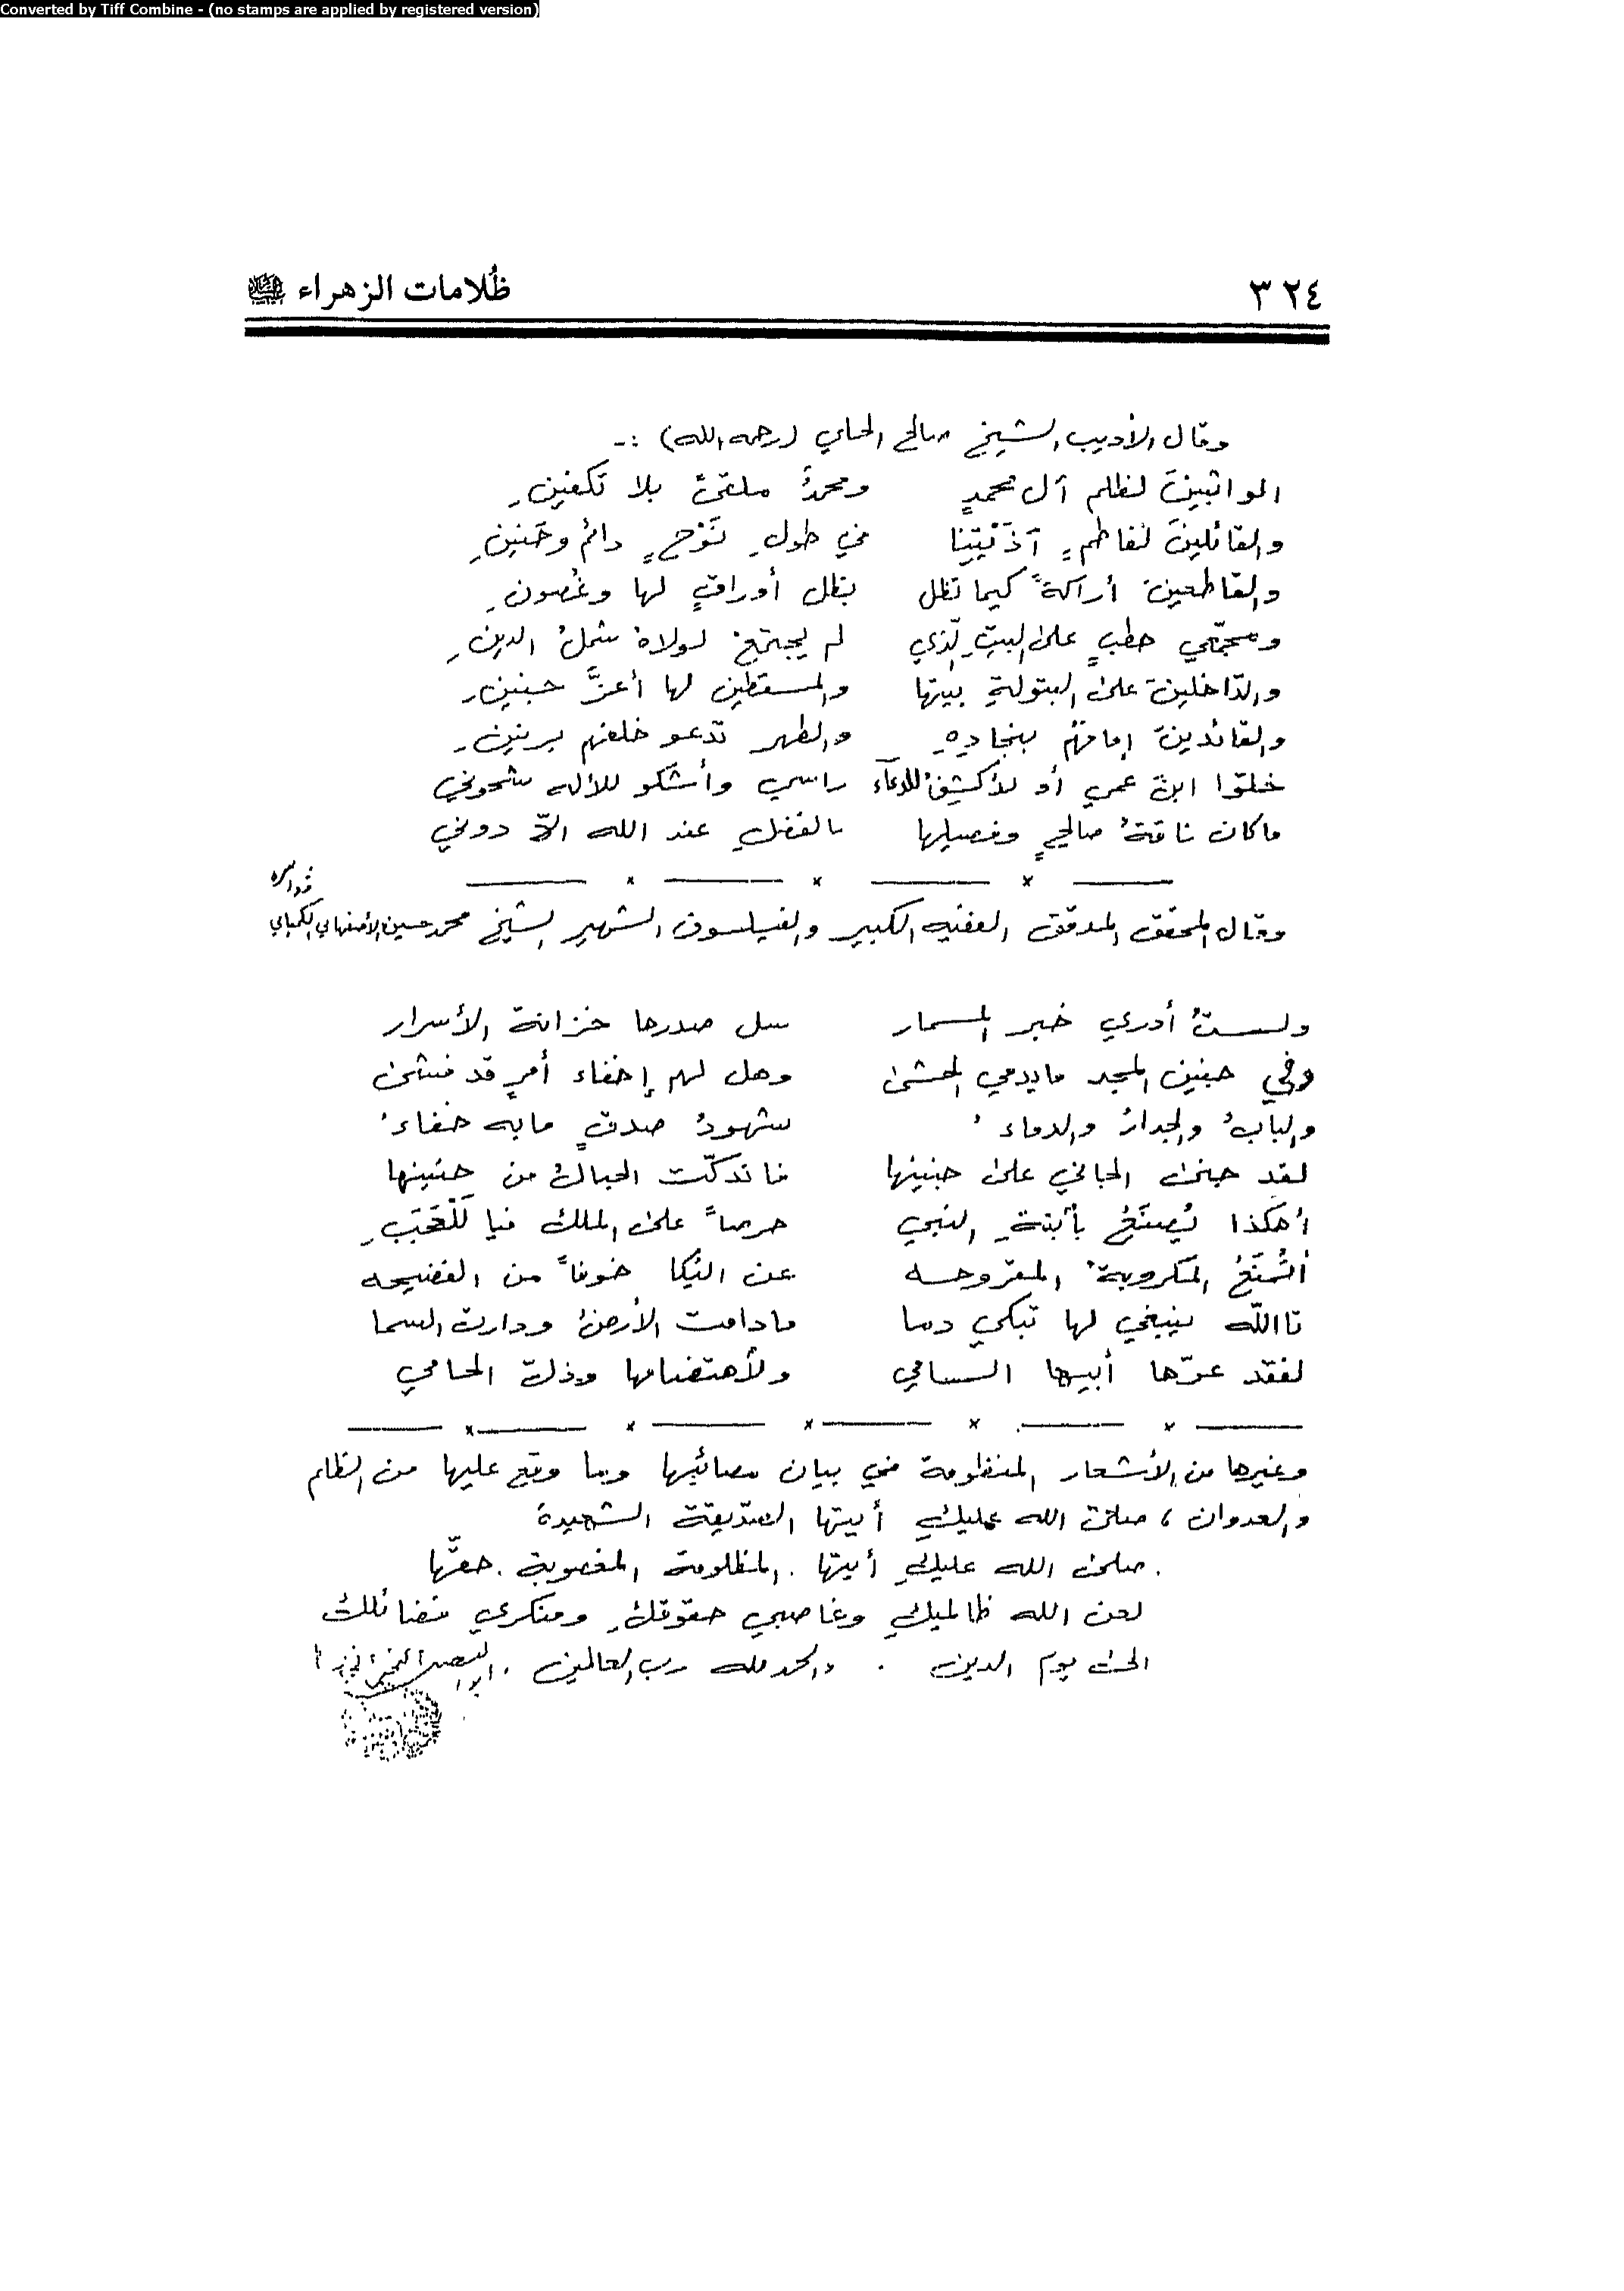 Converted by Tiff Combine - (no stamps are applied by registered version)
٣٢٤ ظُلامات الزهراء
وقال الأديب الشيخ صالح الحلي (رحمه الله) :-
الواثبينَ لظلم آل محمدٍ ومحمدٌ ملقىً بلا تكفينِ
والقائلينَ لفاطمٍ آذَيْتِنا في طولِ نَوْحٍ دائم وحَنينِ
والقاطعينَ أراكةً كيما تظل بظل أوراقٍ لها وغُصونِ
ومجمّعي حطبٍ على البيتِ الّذي لم يجتمعْ لولاهُ شملُ الدينِ
والدّاخلينَ على البتولةِ بيتها والمسقطين لها أعزَّ جنينِ
والقائدينَ إمامَهُم بنجادِهِ والطهر تدعو خلفهم برنينِ
خلّوا ابنَ عمي أو لأكشِفُ للدعآء راسي وأشكو للأله شجوني
ما كان ناقةُ صالحٍ وفصيلها بالفضلِ عند الله الّا دوني
وقال المحقق المدقّق الفقيه الكبير والفيلسوف الشهير الشيخ محمد حسين الأصفهاني الكمباني
ولستُ أدري خبر المسمار سل صدرها خزانة الأسرار
وفي جنين المجد ما يدمي الحشى وهل لهم إخفاء أمرٍ قد فشى
والبابُ والجدارُ والدماءُ شهودُ صدقٍ ما به خفاءُ
لقد جنى الجاني على جنينها فاندكّت الجبالُ من حنينها
أهكذا يُصنَعُ بأبنةِ النبي حرصاً على الملك فيا لَلْعَجَبِ
أتُمنَعُ المكروبةُ المقروحه عن البُكا خوفاً من الفضيحه
تاالله ينبغي لها تبكي دما مادامت الأرضُ ودارت السما
لفقد عزّها أبيها السامي ولأهتضامها وذلّ الحامي
وغيرها من الأشعار المنظومة في بيان مصائبها وما وقع عليها من الظلم
والعدوان ، صلى الله عليكِ أيتها الصدّيقة الشهيدة
صلى الله عليكِ أيتها المظلومة المغصوبة حقّها
لعن الله ظالميكِ وغاصبي حقوقكِ ومنكري فضائلك
الى يوم الدين . والحمد لله رب العالمين .